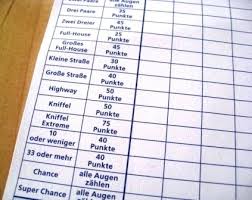 Zwei Paare
alle Augen
zählen
Drei Paare
35
Punkte
Zwei Dreier
45
Punkte
Full-House
25
Punkte
Großes
Full-House
45
Punkte
Kleine Straße
30
Punkte
Große Straße
40
Punkte
Highway
50
Punkte
Kniffel
50
Punkte
Kniffel
Extreme
75
Punkte
10
oder weniger
40
Punkte
33 oder mehr
40
Punkte
Chance
alle Augen
zählen
Super Chance
alle Augen